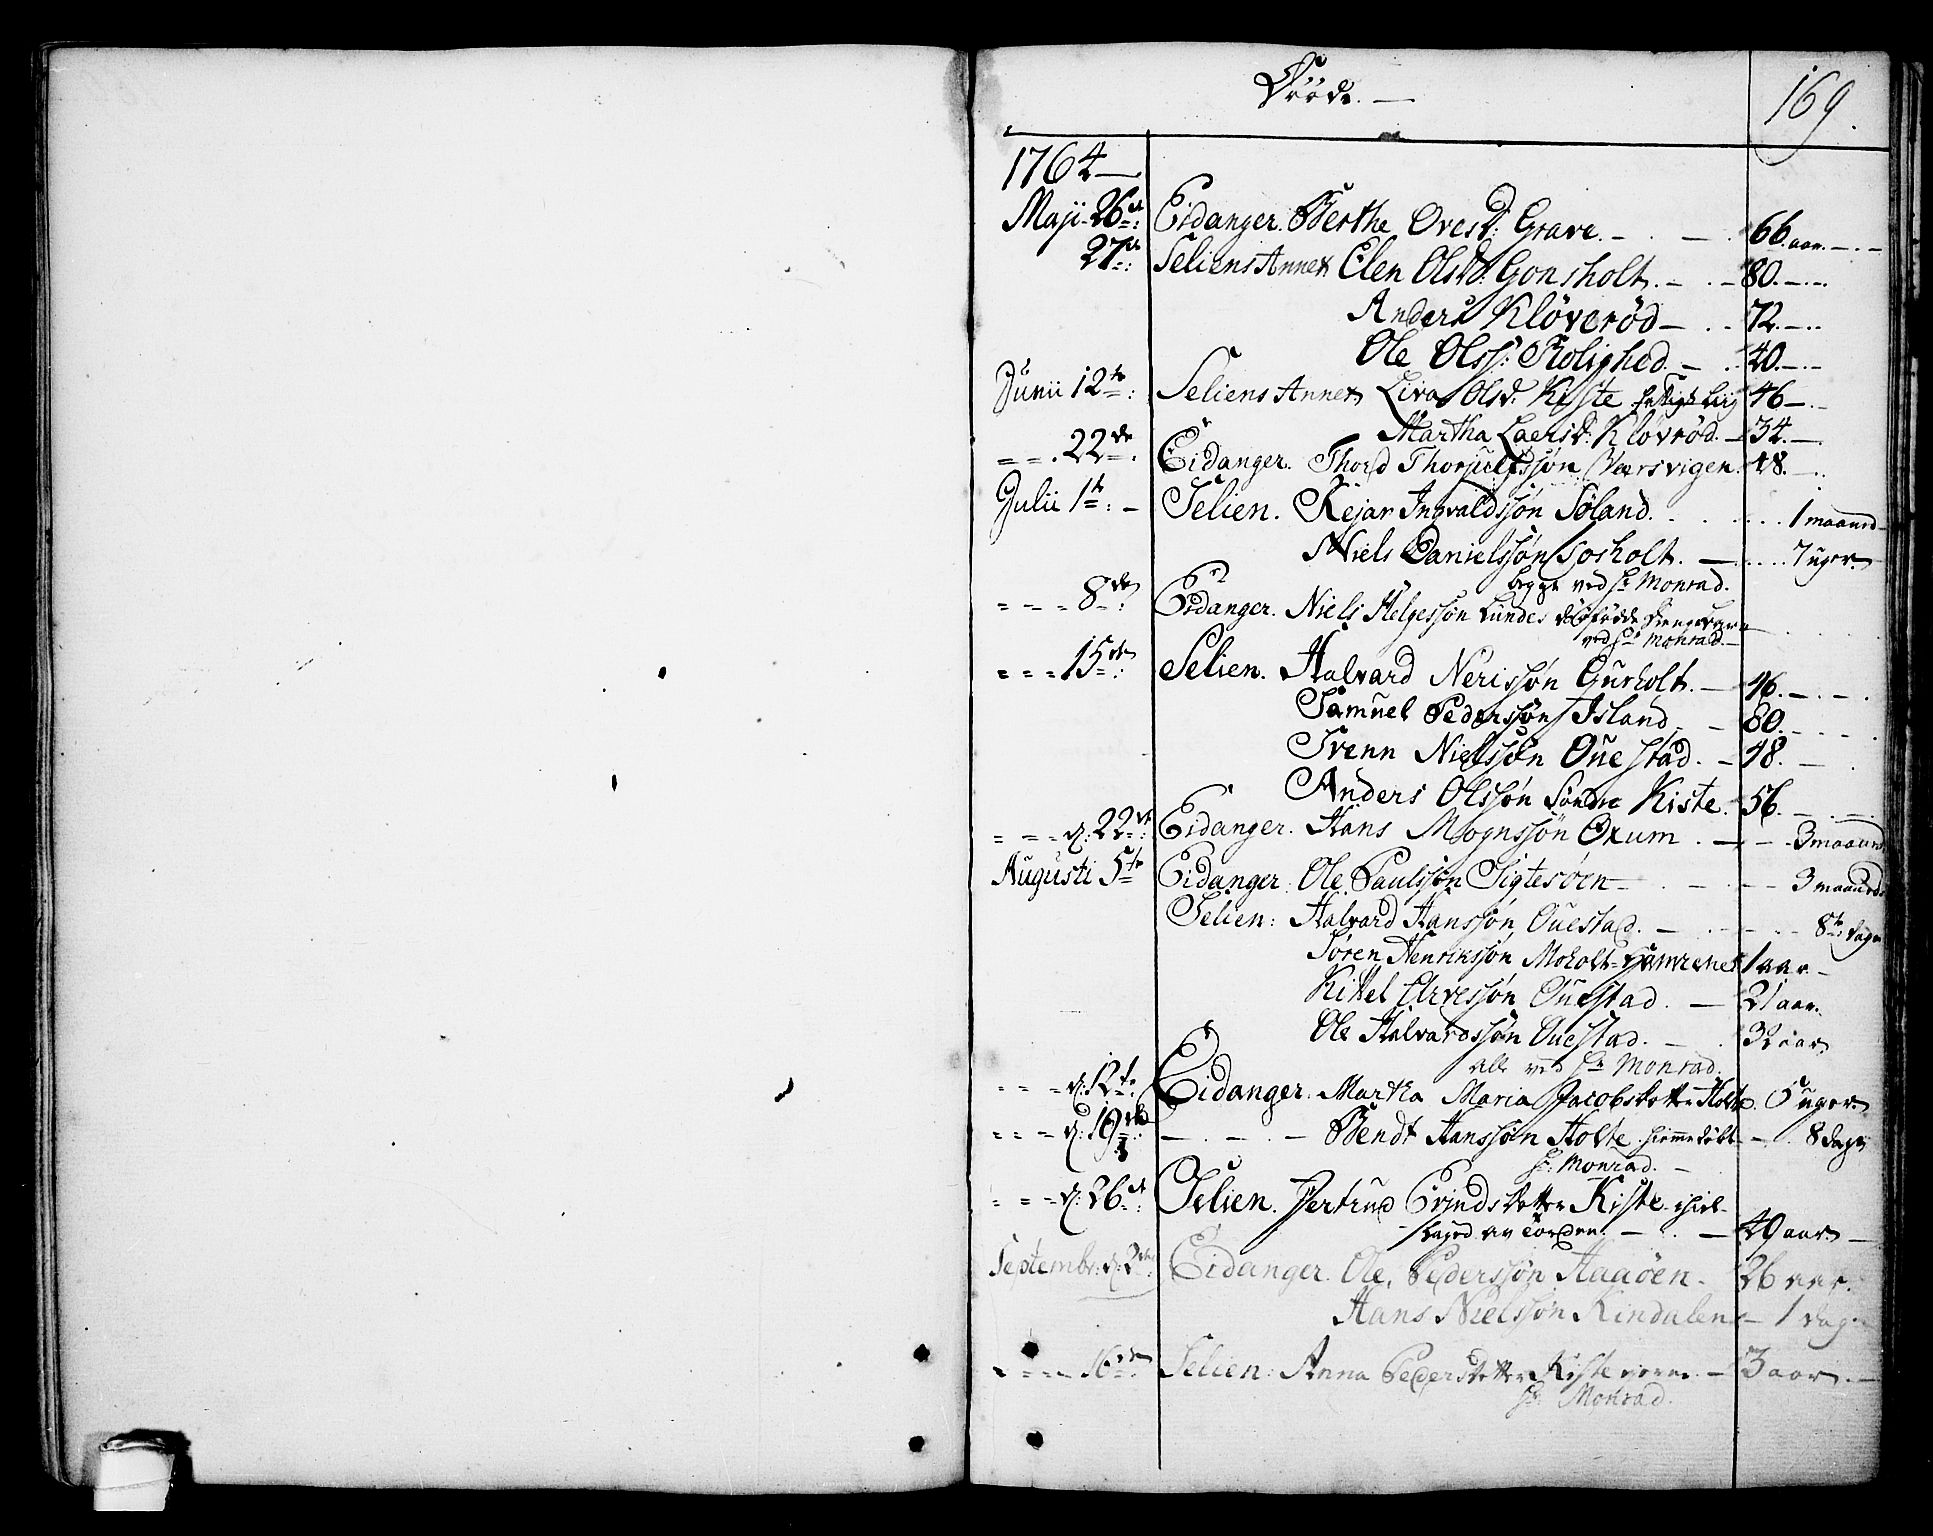 Døøde. —
169.
1764 —
Maji 26de: Eidanger. Berthe Ovesd: Grave. — 66 aar. —
27de: Seliens Annex Elen Olsd: Gonsholt. — 80. —
Anders Kløverød — 72. —
Ole Olss: Rolighed. — 40. —
Junii 12te: Seliens Annex Liva Olsd: Kiste 46 —
Martha Laersd: Kløvrød. — 34. —
22de: Eidanger. Thord Thorjulfssøn Versvigen. 48. —
Julii 1te: — Selien. Rejar Ingvaldssøn Søland. 1 maaned
Niels Danielssøn Gosholt. — 7 uger.
begge ved Hr Monrad.
8de: Eidanger. Niels Helgessøn Lundes dødfødde Drengebarn
ved Hr Monrad. —
15de: Selien. Halvard Nerissøn Gurholt. — 46. —
Samuel Pederssøn Island — 80.
Svenn Nielssøn Ouestad. — 48. —
Anders Olssøn Søndre Kiste. 56. —
d. 22de: Eidanger. Hans Mognssøn Oxum. — 3 maaned
Augusti 5te Eidanger. Ole Paulssøn Sigtesøen — 3 maaned
Selien: Halvard Hanssøn Ouestad. — 8te dage
Søren Henrikssøn Moholt- 1 aar. —
Kittel Arvessøn Ouestad. — 21 aar.
Ole Halvardssøn Ouestad. — 32 aar
alle ved Hr Monrad.
d. 12te Eidanger. Martha Maria Jacobsdotter Holte. 5 uger.
d. 19de: — Bendt Hanssøn Holte. hiemmedøbt — 8 dage
Hr: Monrad. —
d. 26de: Selien. Gertrud Evindsdotter Kiste ihiel-
slaged av Torden. — 49 aar. —
Septembr: d. 2de: Eidanger. Ole Pederssøn Haaøen. 26 aar.
Hans Nielssøn Kindalen — 1 dag.
16de: Selien: Anna Pedersdotter Kiste — 3 aar. —
Hr. Monrad.